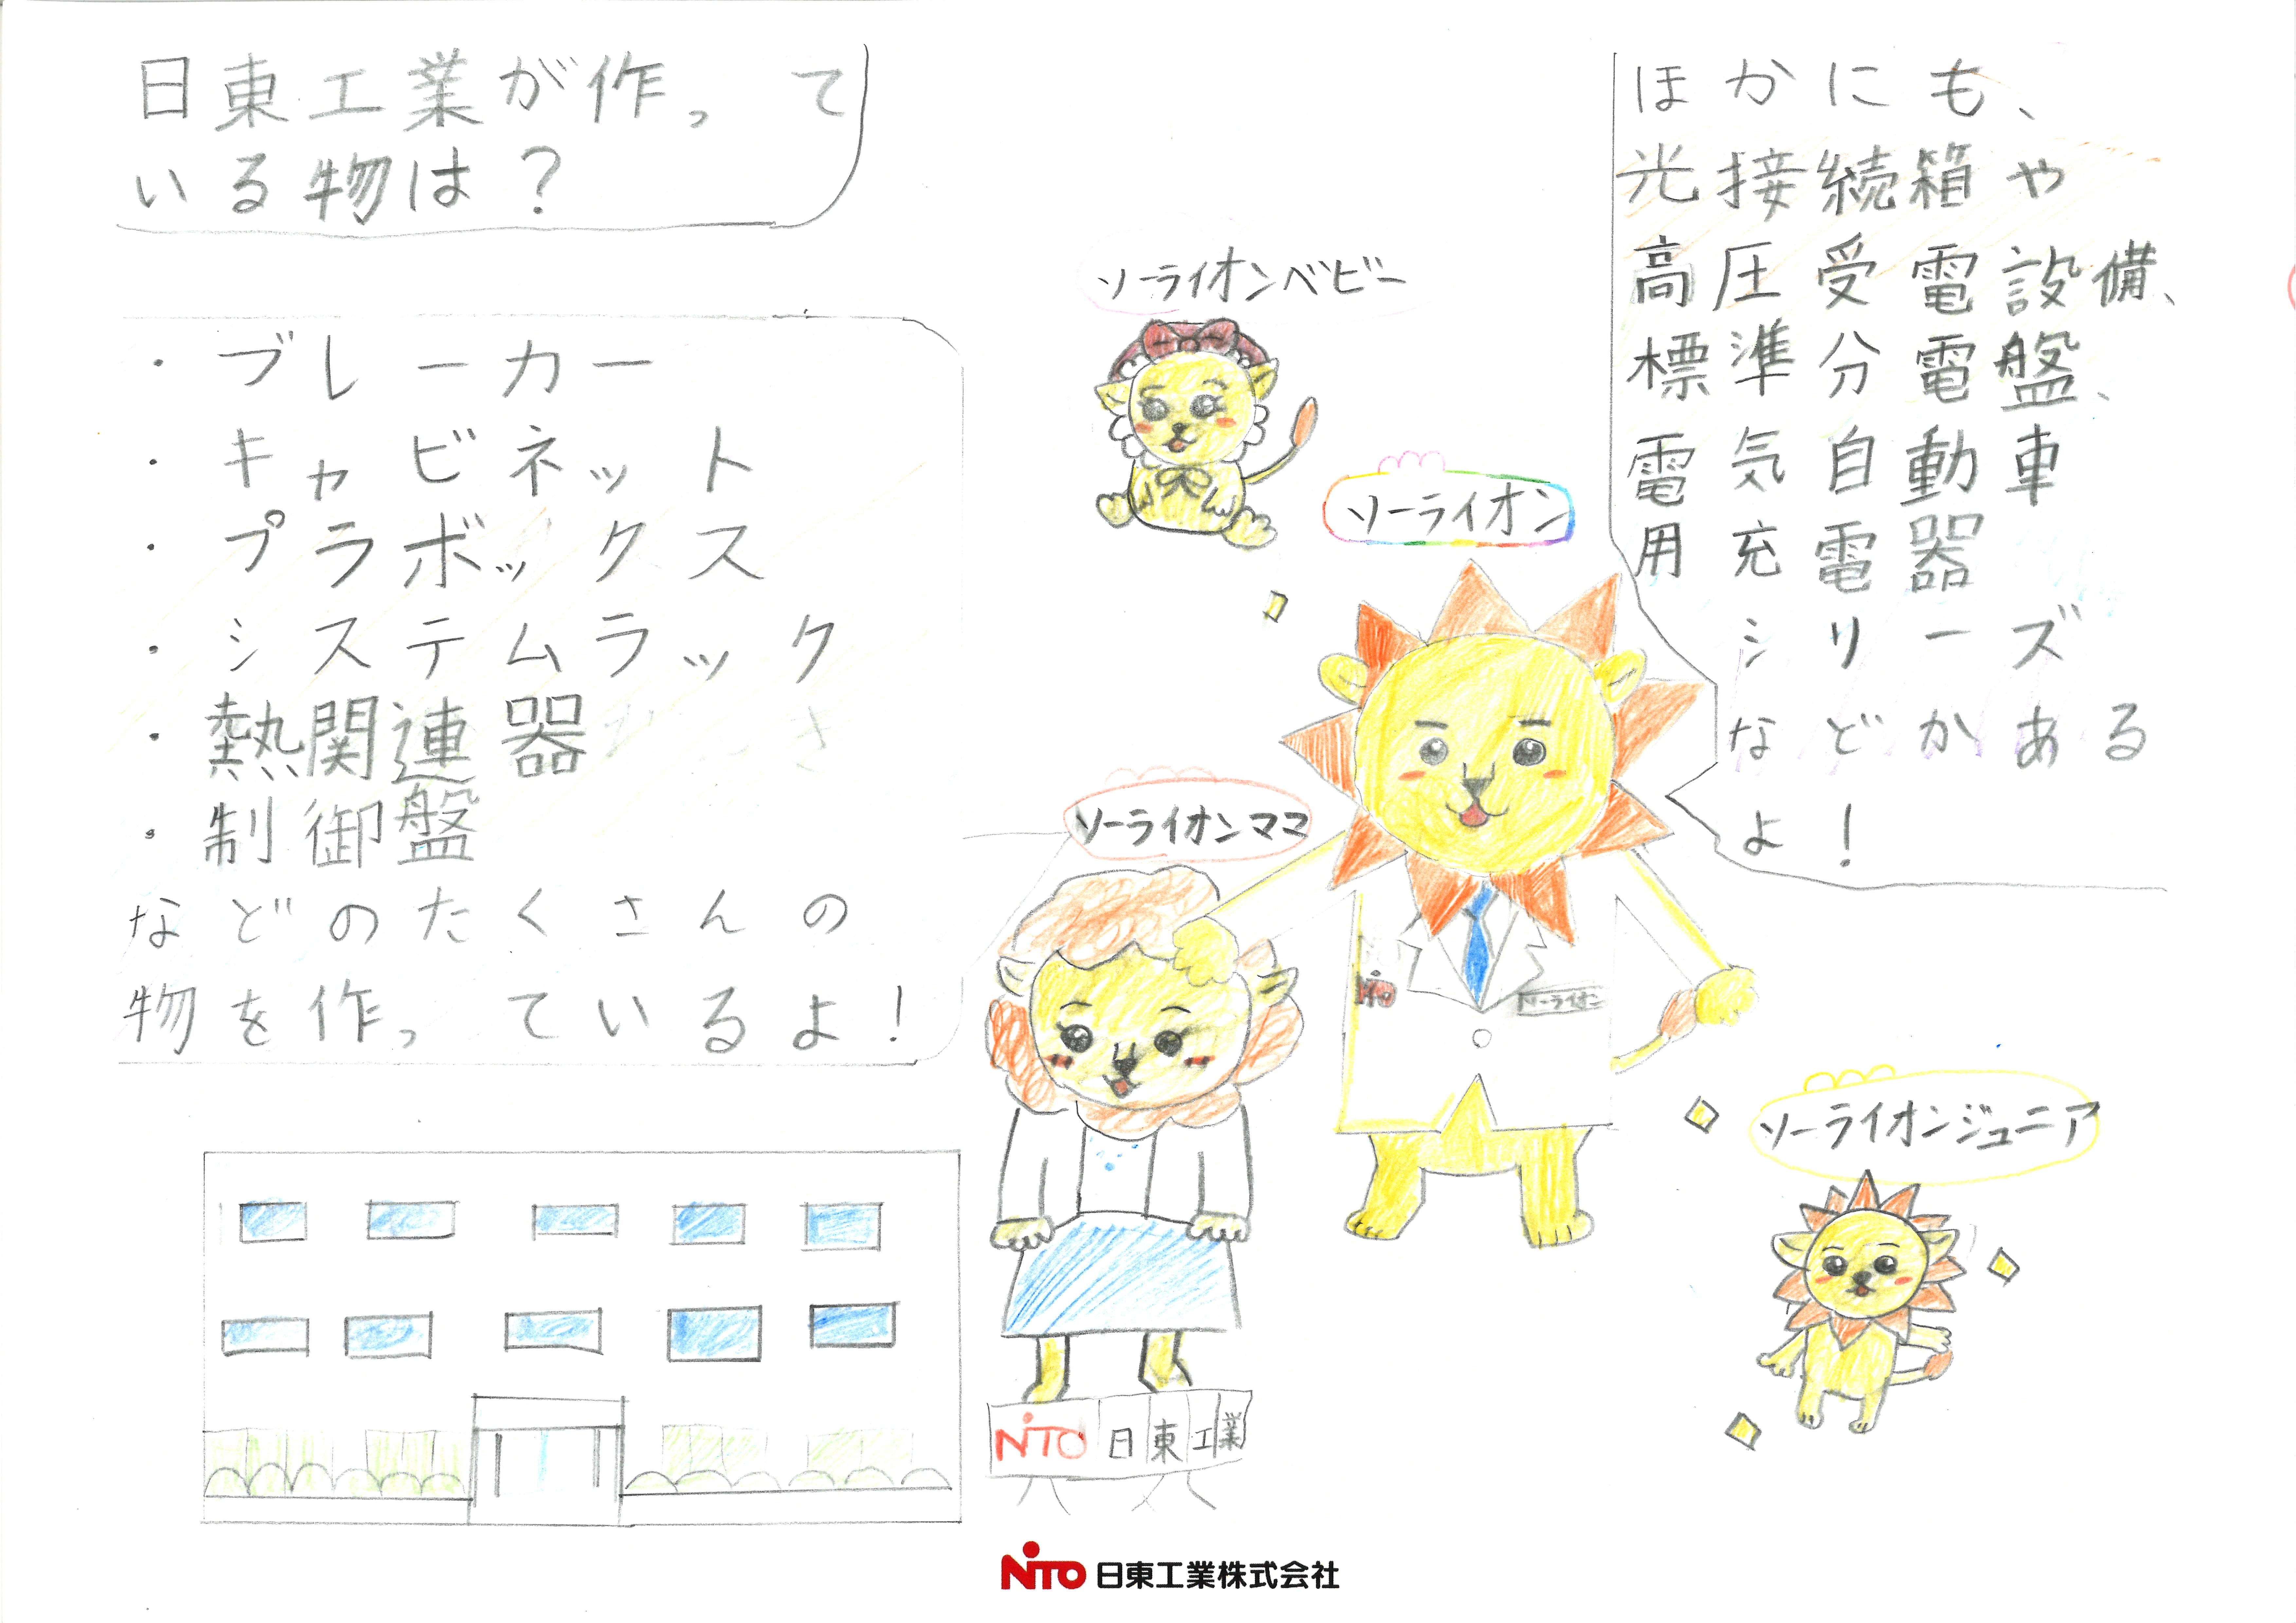 日東工業が作って
いる物は？
・ブレーカー
・キャビネット
・プラボックス
・システムラック
・熱関連器
・制御盤
などのたくさんの
物を作っているよ！
ソーライオンベビー
ソーライオン
ソーライオンママ
NiTO
ソーライオン
ほかにも、
光接続箱や
高圧受電設備、
標準分電盤、
電気自動車
用充電器
シリーズ
などかある
よ！
ソーライオンジュニア
NiTO 日東工業
NiTO 日東工業株式会社